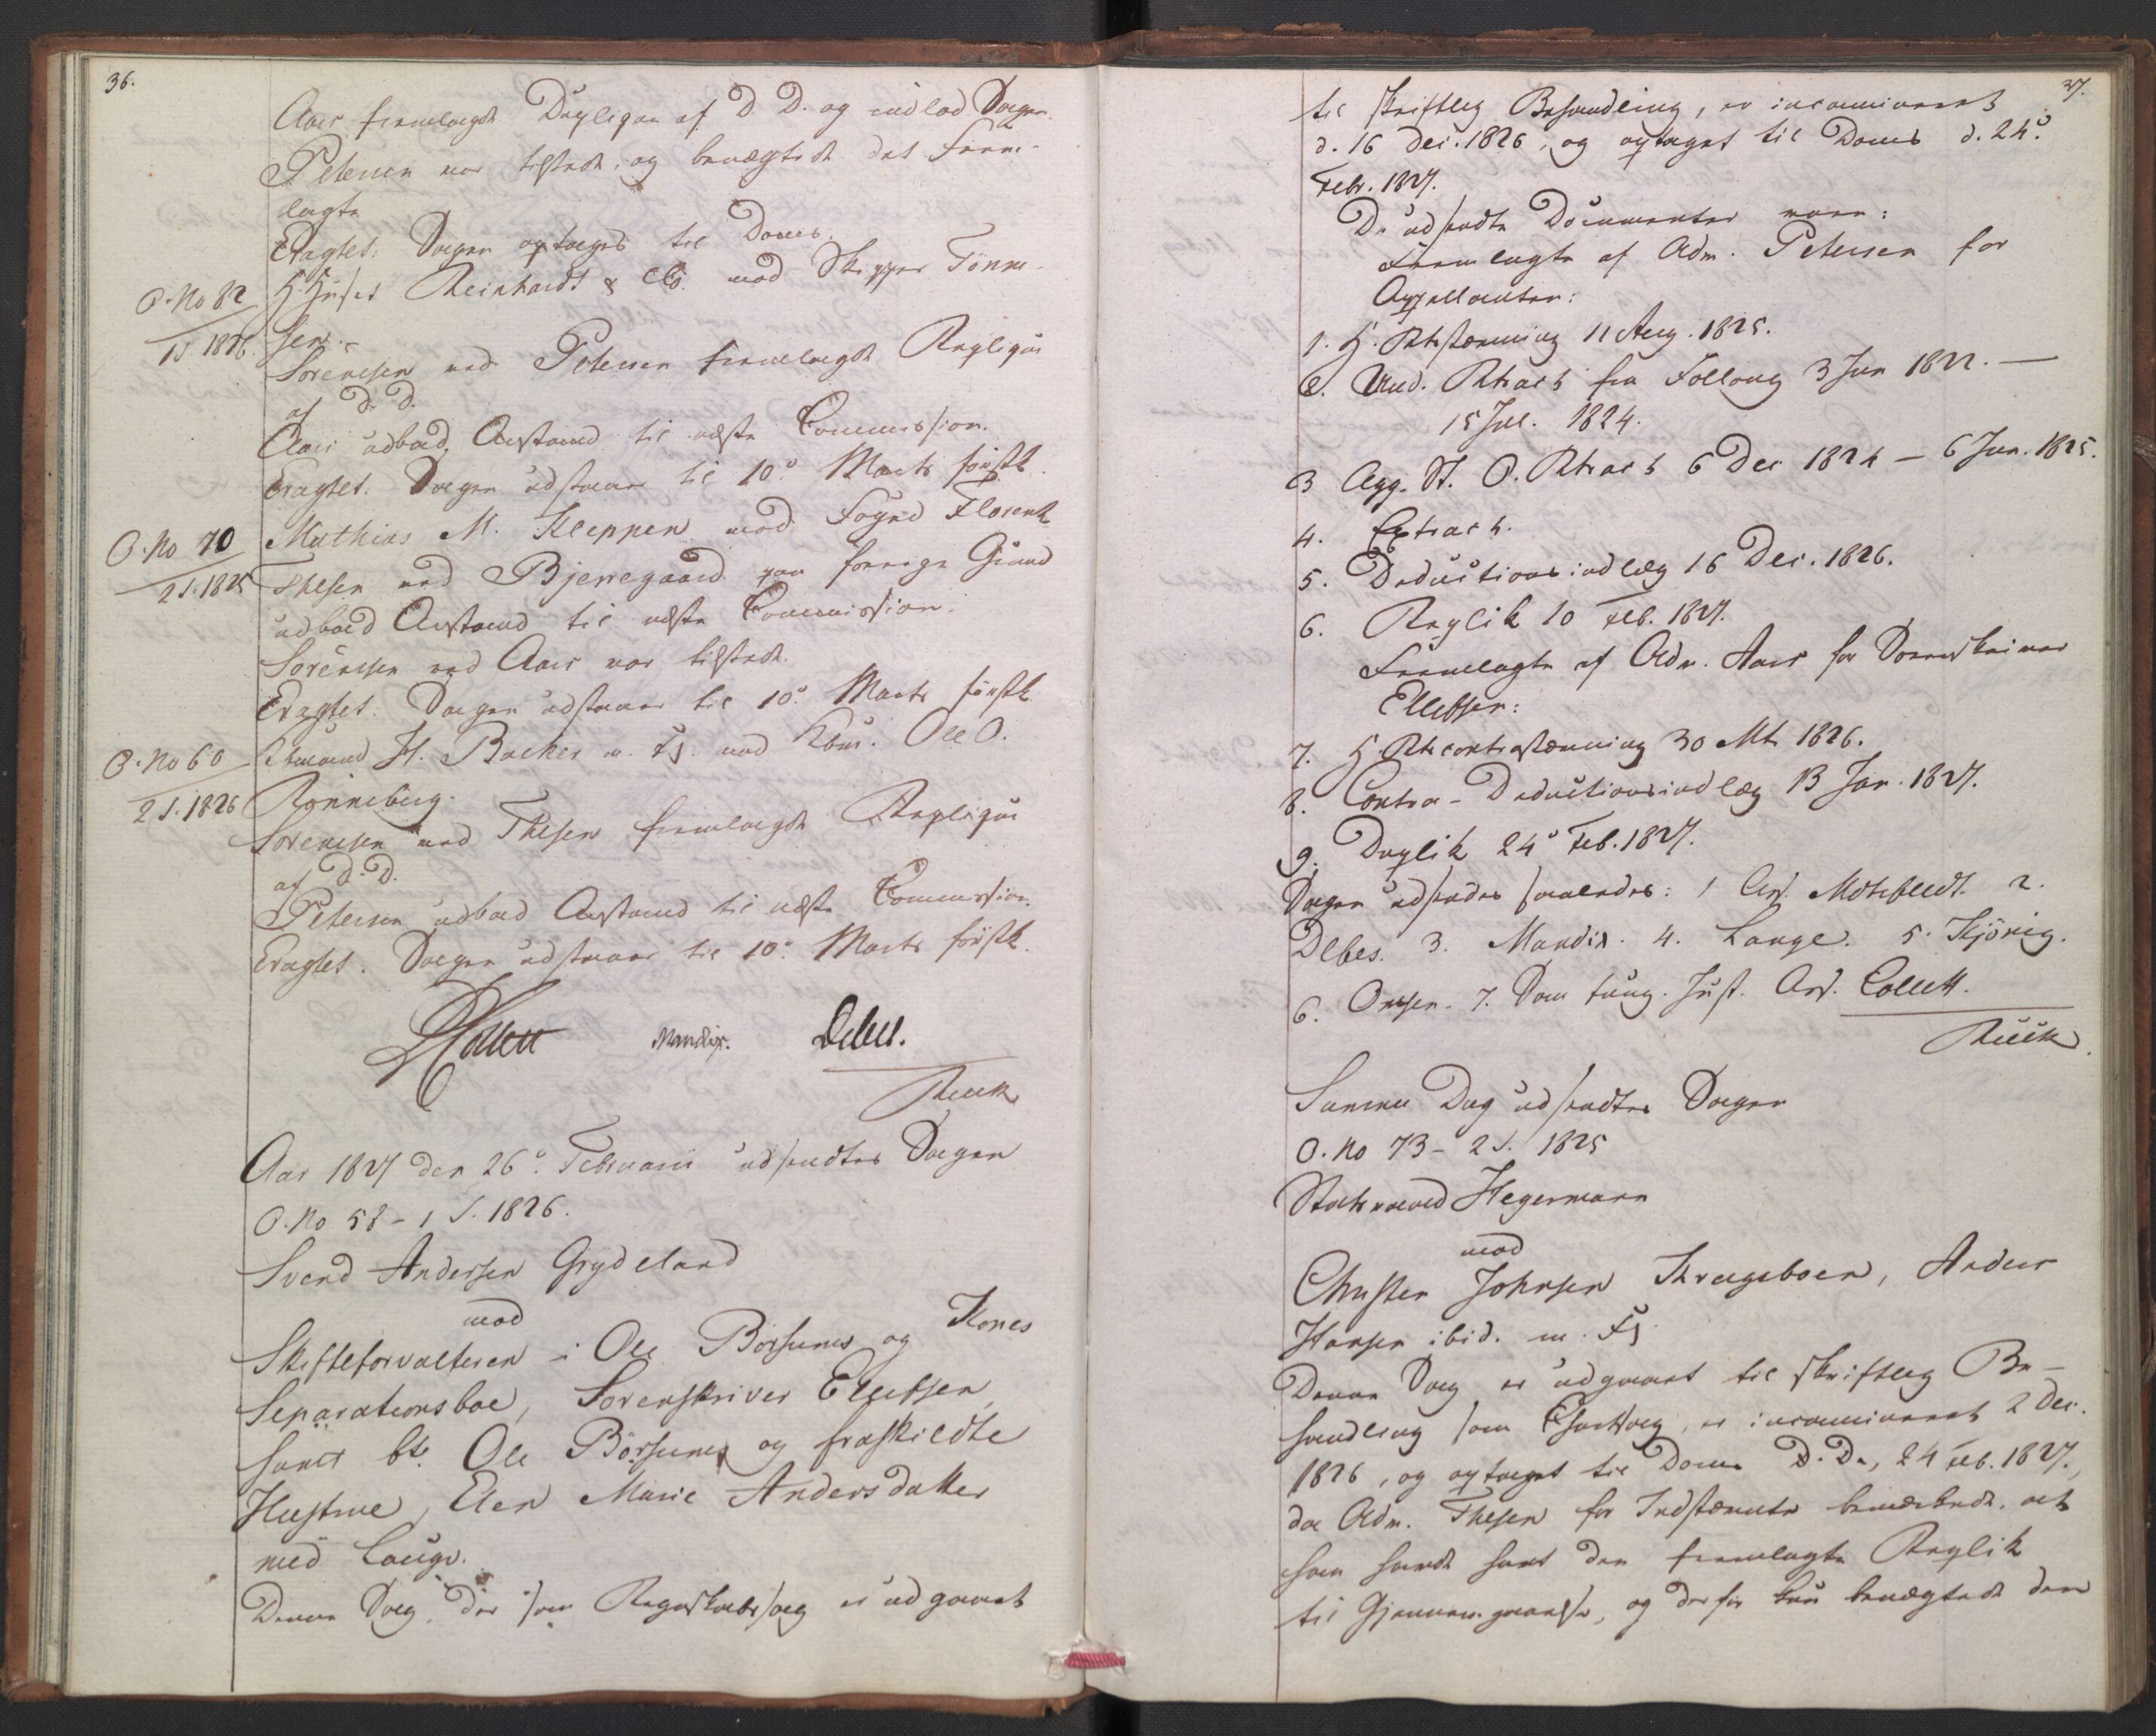 36.
Aars fremlagde Duplique af D. D. og indlod Sagen.
Petersen var tilstede, og benægtede det Frem-
lagte
Eragtet: Sagen optages til Doms.
O. No 82
1 S. 1826.
H. Huset Reinhardt & Co. mod Skipper Tønne-
sen.
Sörensen ved Petersen fremlagde Repliqve
af D. D.
Aars udbad Anstand til næste Commission.
Eragtet: Sagen udstaaer til 10de Marts förstk.
O. No 70
2 S. 1825
Mathias M. Kleppen mod Foged Florentz
Thesen ved Bjerregaard paa forrige Grund
udbad Anstand til næste Commission.
Sörensen ved Aars var tilstede.
Eragtet: Sagen udstaaer til 10de Marts förstk.
O. No 60
2 S. 1826
H. Backer m. Fl. mod Kbm. Ole O.
Rønneberg.
Sörensen ved Thesen fremlagde Repliqve
af D. D.
Petersen udbad Anstand til næste Commission.
Eragtet: Sagen udstaaer til 10de Marts förstk.
Collett Mandix. Debes.
Aar 1827 den 26de Februarii udsendtes Sagen
O. No 58 - 1 S. 1826.
Svend Andersen Grydeland
mod
Skifteforvalteren i Ole Börsums og Kones
Separationsboe, Sorenskriver Ellefsen,
samt bte Ole Börsum og fraskildte
Hustrue, Elen Marie Andersdatter
med Laugv.
Denne Sag, der som Regnskabssag er udgaaet
37.
til skriftlig Behandling, er incamineret
d. 16 Dec. 1826, og optaget til Doms d. 24de
Febr. 1827.
De udsendte Documenter vare:
Fremlagte af Adv. Petersen for
Appellanten:
1. H. Rtsstævning 11 Aug. 1825.
2. Und. Rtsact fra Follaug 3 Jun 1822. —
15 Jul. 1824.
3 App. St. O. Rtsact 6 Dec 1824 — 6 Jun. 1825.
4. Extract.
5. Deductionsindlæg 16 Dec. 1826.
6. Replik 10 Feb. 1827.
Fremlagte af Adv. Aars for Sorenskriver
Ellefsen:
7. H. Rtscontrastævning 30 Mts 1826.
8. Contra-Deductionsindlæg 13 Jan. 1827.
9. Duplik 24de Feb. 1827.
Sagen udsendes saaledes: 1 Ass. Motzfeldt. 2.
Debes. 3. Mandix. 4. Lange. 5. Kjönig.
6. Omsen. 7. Som fung. Just. Ass. Collett.
Samme Dag udsendtes Sagen
O. No 73 - 2 S. 1825
Statsraad Hegermann
mod
Christen Johnsen Kragsboen, Anders
Hansen ibid. m. Fl.
Denne Sag er udgaaet til skriftlig Be-
handling som Extrasag, er incamineret 2 Dec.
1826, og optaget til Doms D. D., 24 Feb. 1827,
da Adv. Thesen for Indstævnte bemærkede, at
han havde havt den fremlagte Replik
til Gjennemgaaelse, og derfor kun benægtede den